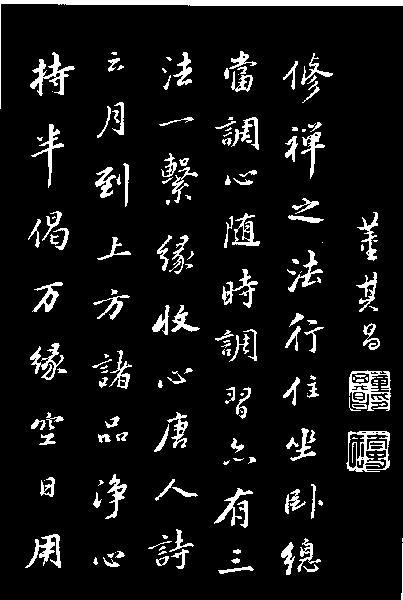 董其昌
修禪之法行住坐卧總
當調心随時調習亦有三
法一繫緣收心唐人詩
云月到上方諸品淨心
持半偈万緣空日用